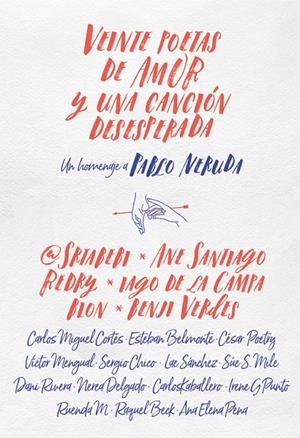 VEINTE POETAS
DE AMOR
Y UNA CANCIÓN
DESESPERADA
Un homenaje a PABLO NERUDA
@SRTABEBI * ANE SANTIAGO
REDRY * IAGO DE LA CAMPA
DION * BENJI VERDES
Carlos Miguel Cortés · Esteban Belmonte · César Poetry
Víctor Mengual · Sergio Chico · Lae Sánchez · Sue S. Mile
Dani Rivera · Nerea Delgado · CarlosKaballero · Irene G Punto
Ruenda M · Raquel Beck · Ana Elena Pena